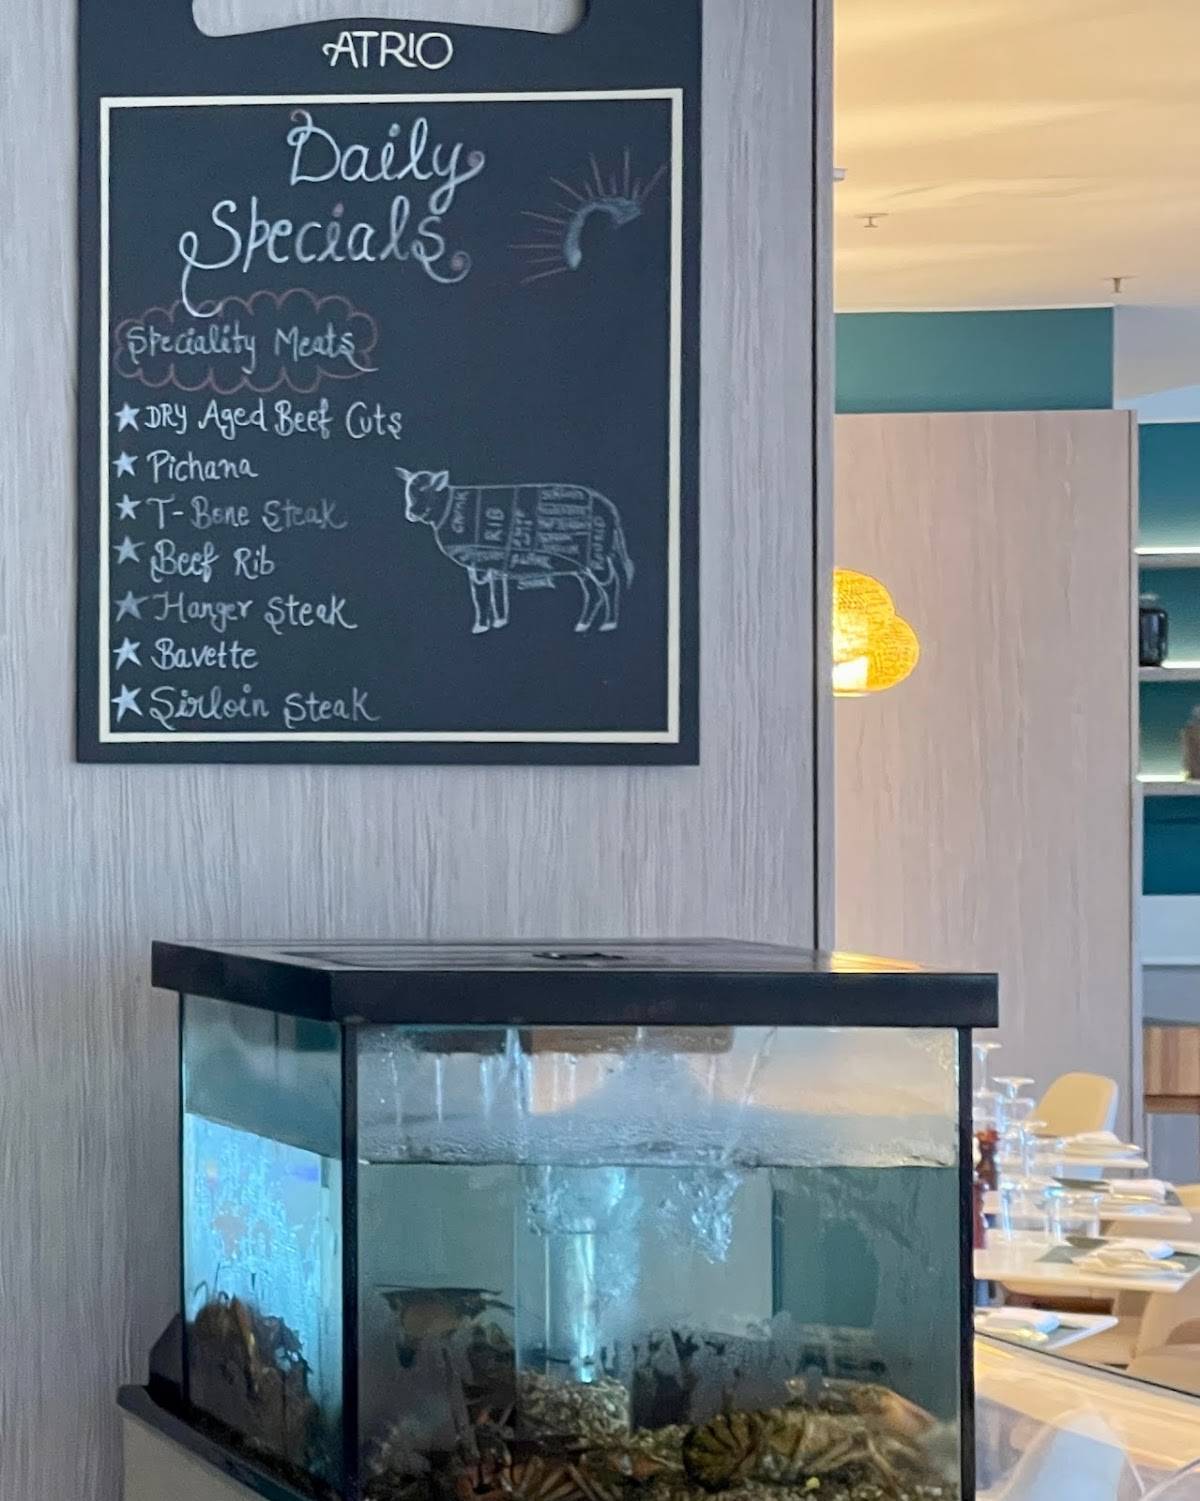 ATRIO
Daily
Specials
Speciality Meats
DRY Aged Beef Cuts
Pichana
T-Bone Steak
Beef Rib
Hanger Steak
Bavette
Sirloin Steak
RIB